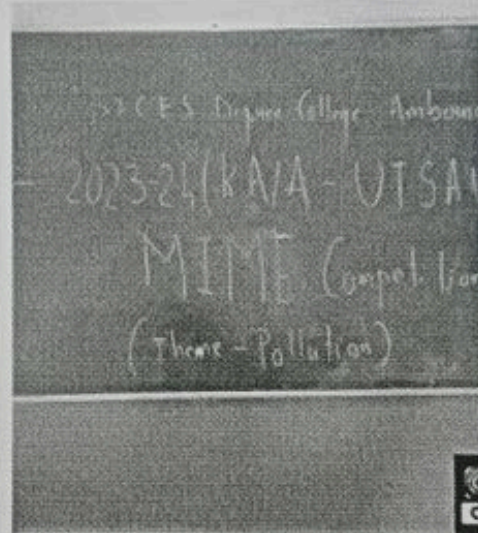 CES Degree College Ambern
- 2023-24 (KALA - UTSAV
MIME Competition
(Theme - Pollution)